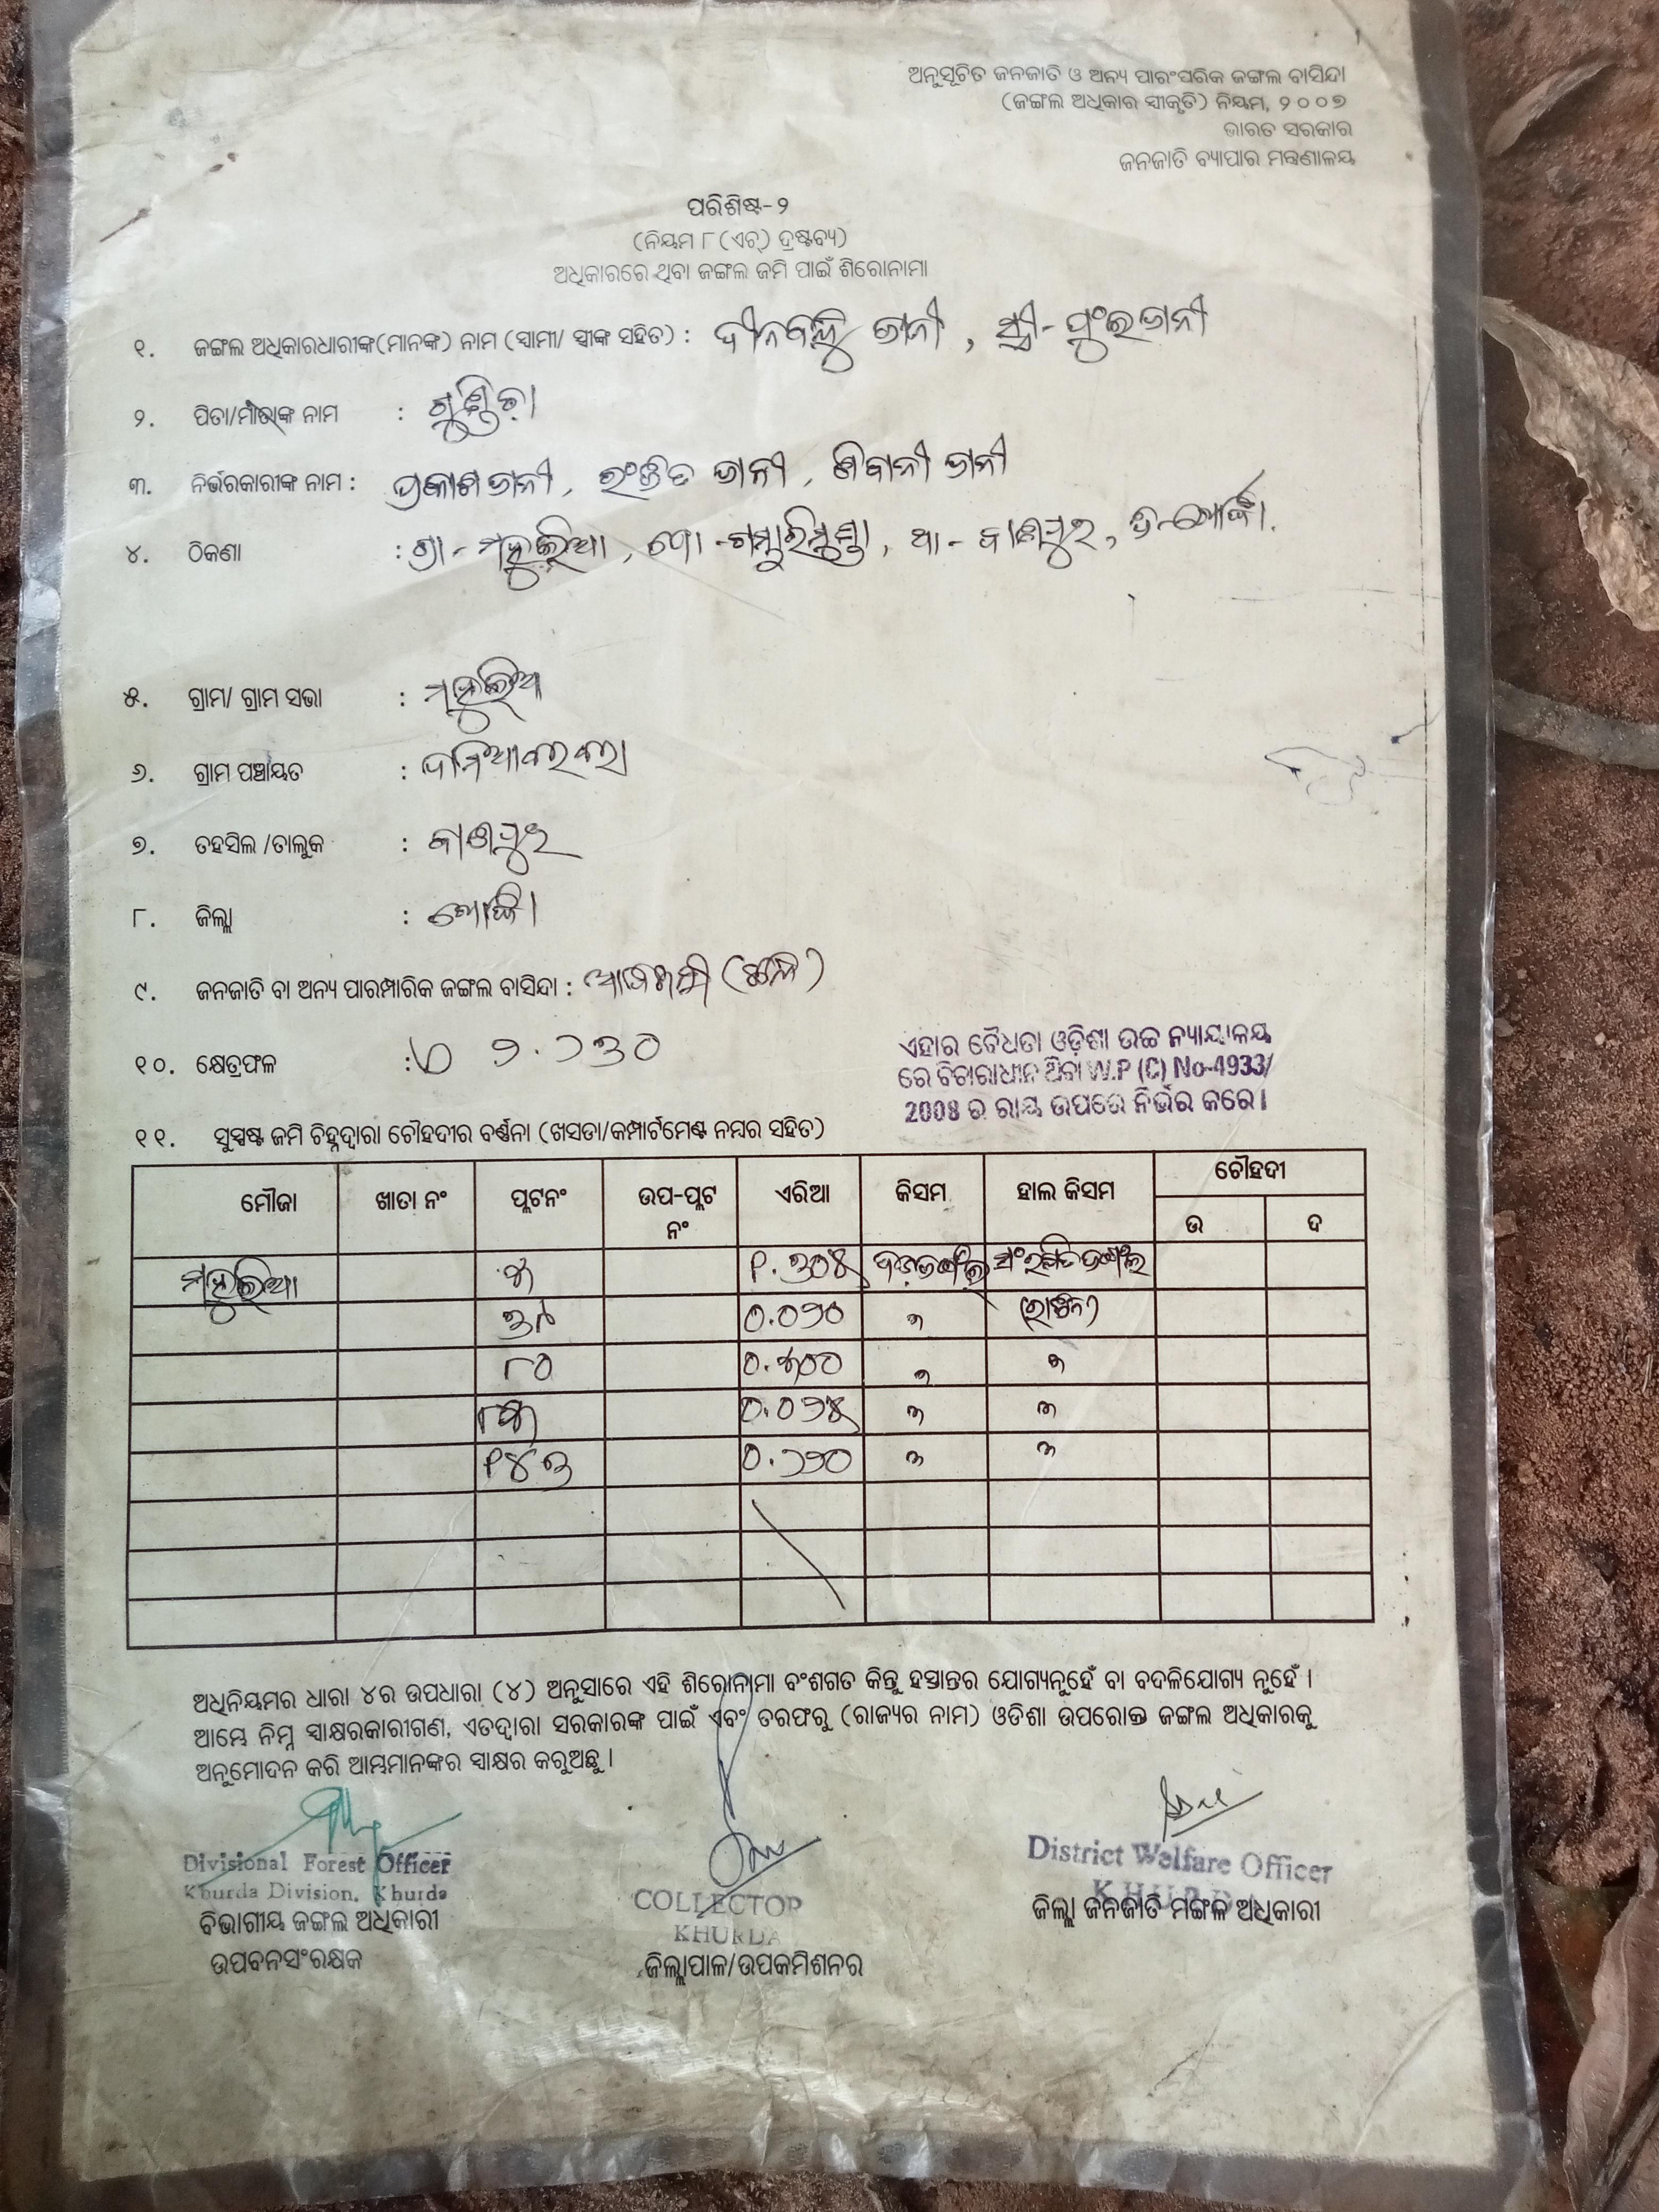 ଅନୁସୂଚିତ ଜନଜାତି ଓ ଅନ୍ୟ ପାରଂପରିକ ଜଙ୍ଗଲ ବାସିନ୍ଦା
(ଜଙ୍ଗଲ ଅଧିକାର ସ୍ୱୀକୃତି) ନିୟମ, ୨୦୦୭
ଭାରତ ସରକାର
ଜନଜାତି ବ୍ୟାପାର ମନ୍ତ୍ରଣାଳୟ
ପରିଶିଷ୍ଟ-୨
(ନିୟମ ୮(ଏଚ୍) ଦ୍ରଷ୍ଟବ୍ୟ)
ଅଧିକାରରେ ଥିବା ଜଙ୍ଗଲ ଜମି ପାଇଁ ଶିରୋନାମା
୧. ଜଙ୍ଗଲ ଅଧିକାରଧାରୀଙ୍କ(ମାନଙ୍କ) ନାମ (ସ୍ୱାମୀ/ ସ୍ତ୍ରୀଙ୍କ ସହିତ) : ଦୀନବନ୍ଧୁ ଜାନୀ, ସ୍ତ୍ରୀ-
୨. ପିତା/ମାତାଙ୍କ ନାମ : ଗୁଣ୍ଡିଚା
୩. ନିର୍ଭରକାରୀଙ୍କ ନାମ : ପ୍ରକାଶ ଜାନୀ, ରଂଜିତ ଜାନୀ, ଶିବାନୀ ଜାନୀ
୪. ଠିକଣା : ଗ୍ରା - ମହୁଲିଆ, ପୋ - ଗମ୍ଭାରିମୁଣ୍ଡା, ଥା - ବାଣପୁର, ଜି-ଖୋର୍ଦ୍ଧା.
୫. ଗ୍ରାମ/ ଗ୍ରାମ ସଭା : ମହୁଲିଆ
୬. ଗ୍ରାମ ପଞ୍ଚାୟତ :
୭. ତହସିଲ /ତାଲୁକ : ବାଣପୁର
୮. ଜିଲ୍ଲା : ଖୋର୍ଦ୍ଧା
୯. ଜନଜାତି ବା ଅନ୍ୟ ପାରମ୍ପାରିକ ଜଙ୍ଗଲ ବାସିନ୍ଦା : ଆଦିବାସୀ
୧୦. କ୍ଷେତ୍ରଫଳ : ୨.୨୩୦
ଏହାର ବୈଧତା ଓଡ଼ିଶା ଉଚ୍ଚ ନ୍ୟାୟାଳୟ
ରେ ବିଚାରାଧୀନ ଥିବା W.P (C) No-4933/
2008 ର ରାୟ ଉପରେ ନିର୍ଭର କରେ।
୧୧. ସୁସ୍ପଷ୍ଟ ଜମି ଚିହ୍ନଦ୍ୱାରା ଚୌହଦୀର ବର୍ଣ୍ଣନା (ଖସଡା/କମ୍ପାର୍ଟମେଣ୍ଟ ନମ୍ବର ସହିତ)
ମୌଜା ଖାତା ନଂ ପ୍ଲଟନଂ ଉପ-ପ୍ଲଟ ନଂ ଏରିଆ କିସମ ହାଲ କିସମ ଚୌହଦୀ
ଉ ଦ
ମହୁଲିଆ ବଡ଼ଜଙ୍ଗଲ ସଂରକ୍ଷିତ ଜଙ୍ଗଲ
୦.୦୨୦
୮୦ ୦.୫୦୦
୦.୦୨୫
୧୪୩ ୦.୨୨୦
ଅଧିନିୟମର ଧାରା ୪ର ଉପଧାରା (୪) ଅନୁସାରେ ଏହି ଶିରୋନାମା ବଂଶଗତ କିନ୍ତୁ ହସ୍ତାନ୍ତର ଯୋଗ୍ୟନୁହେଁ ବା ବଦଳିଯୋଗ୍ୟ ନୁହେଁ ।
ଆମ୍ଭେ ନିମ୍ନ ସ୍ୱାକ୍ଷରକାରୀଗଣ, ଏତଦ୍ଦ୍ୱାରା ସରକାରଙ୍କ ପାଇଁ ଏବଂ ତରଫରୁ (ରାଜ୍ୟର ନାମ) ଓଡିଶା ଉପରୋକ୍ତ ଜଙ୍ଗଲ ଅଧିକାରକୁ
ଅନୁମୋଦନ କରି ଆମ୍ଭମାନଙ୍କର ସ୍ୱାକ୍ଷର କରୁଅଛୁ ।
Divisional Forest Officer
Khurda Division, Khurda
ବିଭାଗୀୟ ଜଙ୍ଗଲ ଅଧିକାରୀ
ଉପବନସଂରକ୍ଷକ
COLLECTOR
KHURDA
ଜିଲ୍ଲାପାଳ/ଉପକମିଶନର
District Welfare Officer
KHURDA
ଜିଲ୍ଲା ଜନଜାତି ମଙ୍ଗଳ ଅଧିକାରୀ